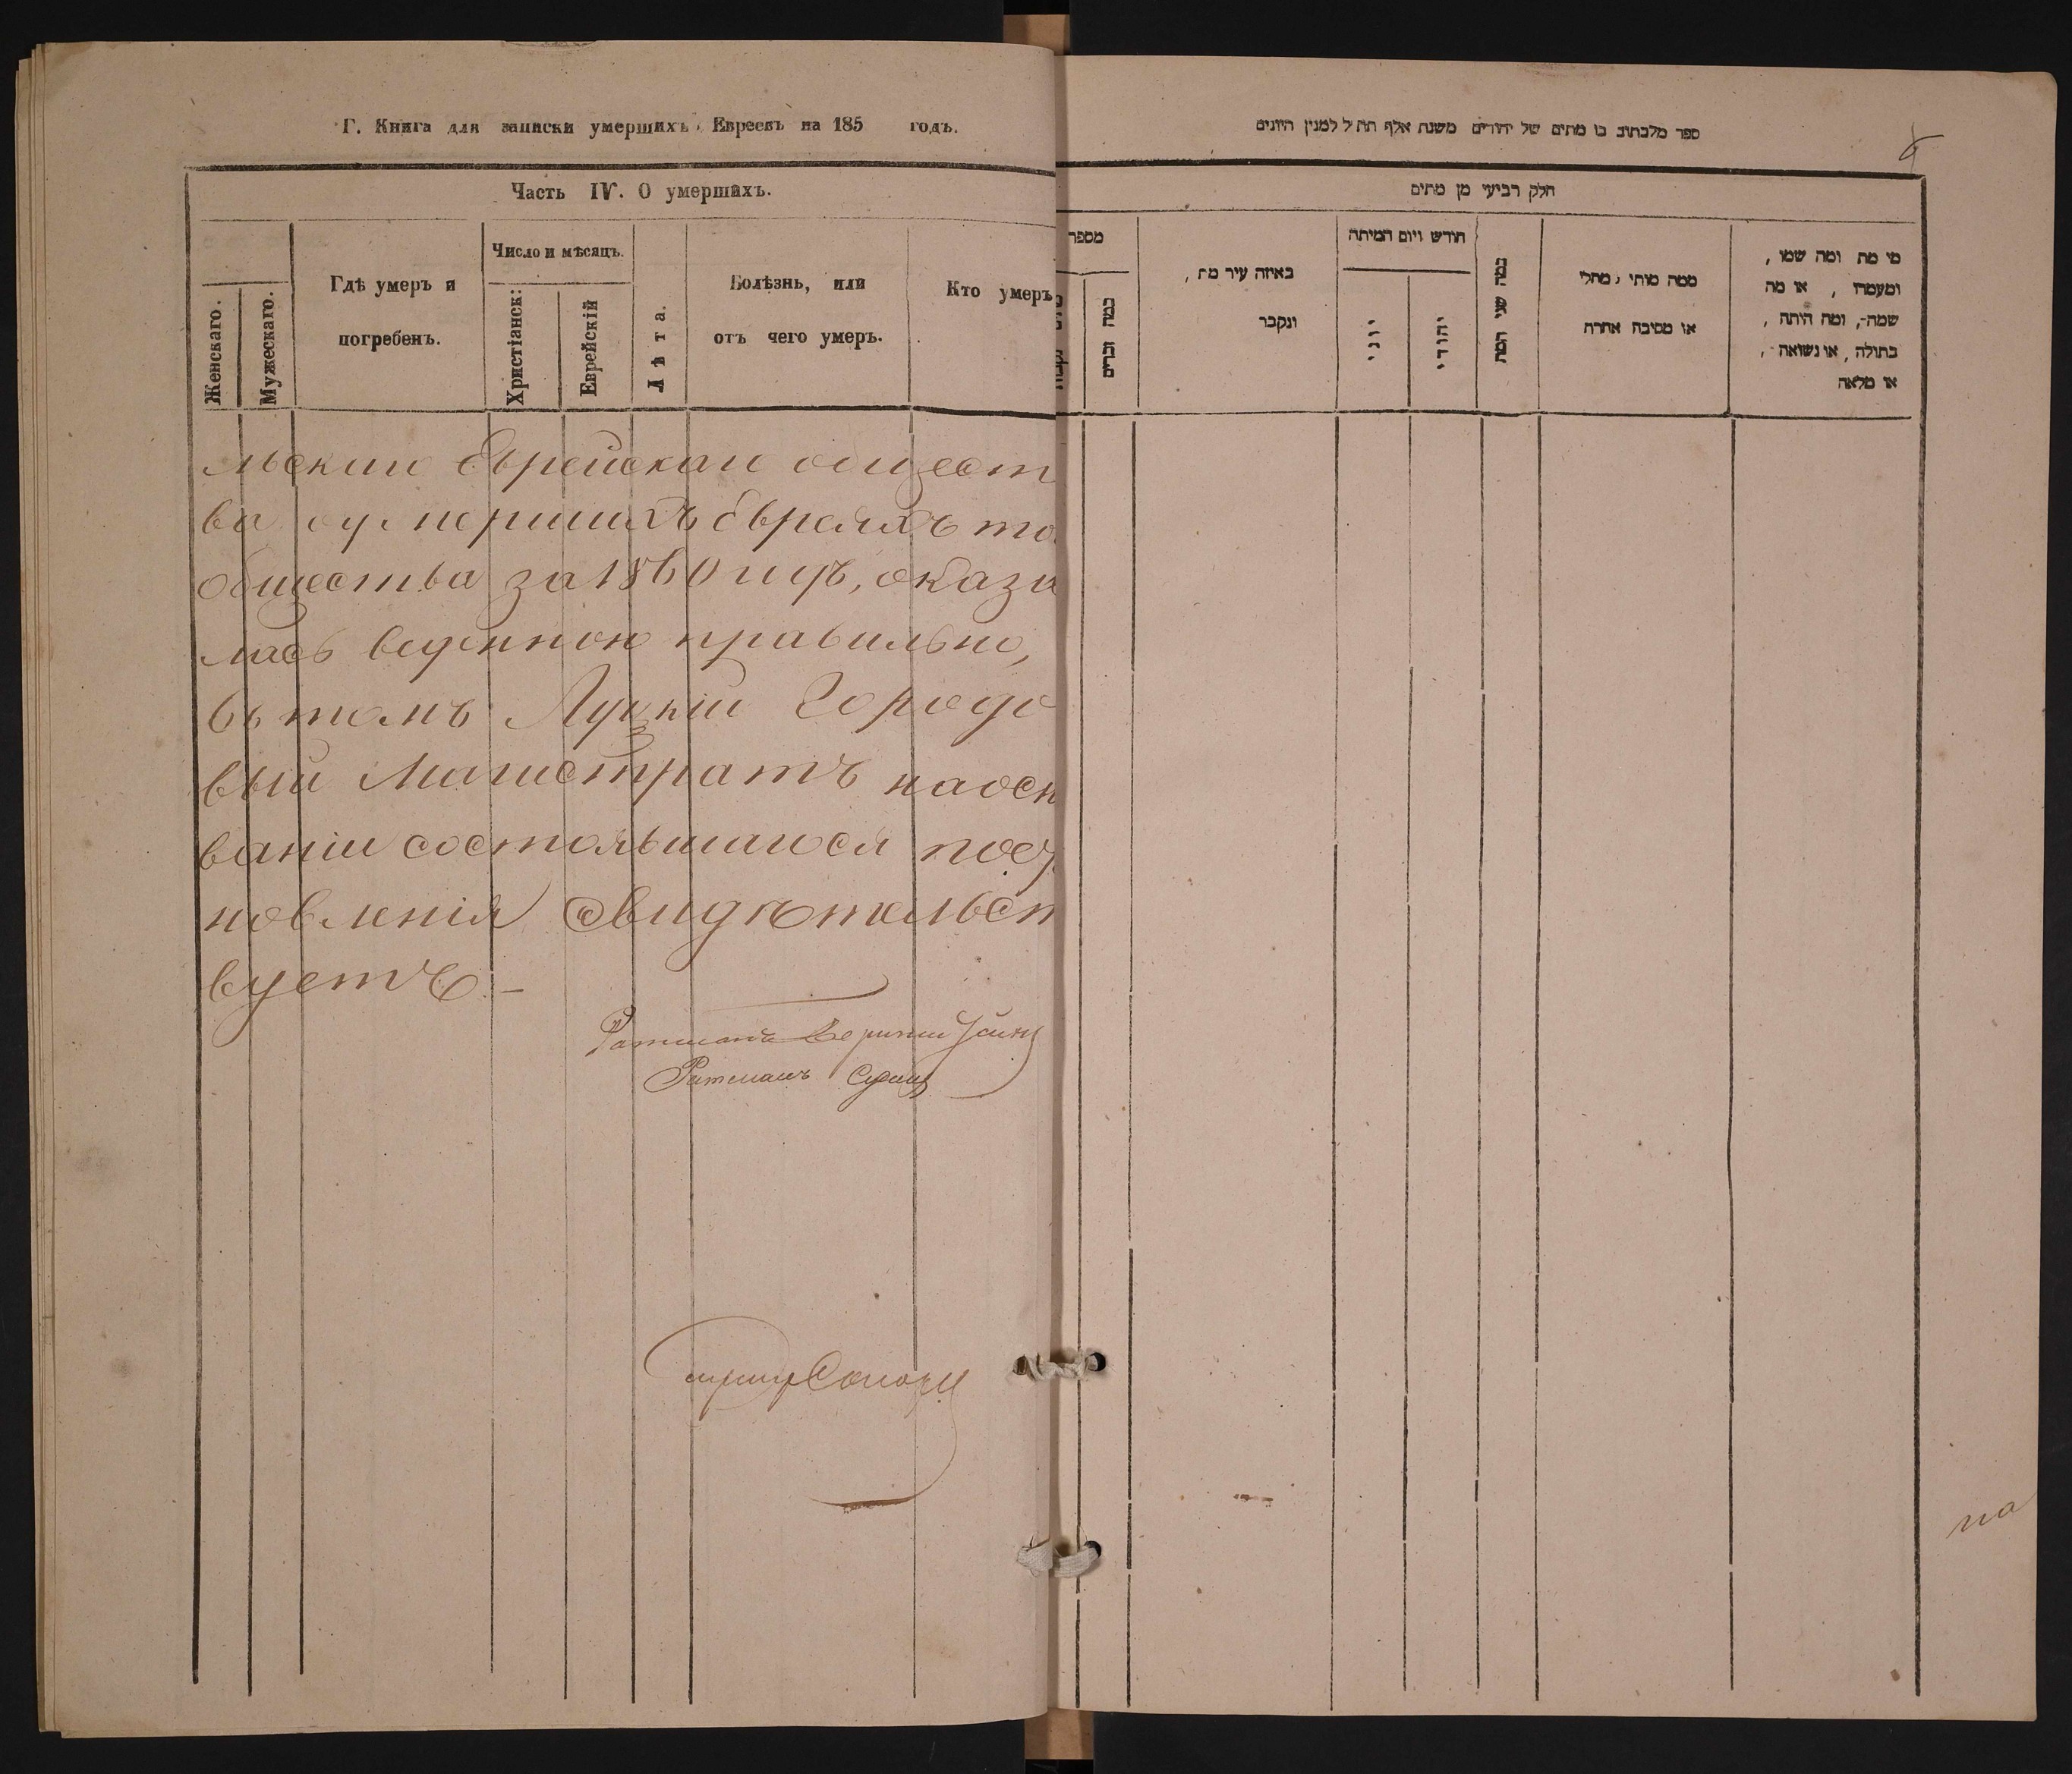 Г. Книга для записки умершихъ Евреевъ на 185 годъ.
Часть IV. О умершихъ.
Женскаго.
Мужескаго.
Гдѣ умеръ и
погребенъ.
Число и мѣсяцъ.
Христіанск:
Еврейскій
Лѣта.
Болѣзнь, или
отъ чего умеръ.
Кто умеръ
льскаго Еврейскаго общест
ва о умершихъ Евреяхъ то
общества за 1860 годъ, оказа
лась веденною правильно,
въ томъ Луцкій Городо
вый Магистратъ на осн
ваніи состоявшагося пос
новленія свидѣтельст
вуетъ –
Ратманъ
Ратманъ
ספר מלכתוב בו מתים של יהודים משנת אלף תת״ל למנין היונים
חלק רביעי מן מתים
מספר
כמה זכרים
באיזה עיר מת,
ונקבר
חודש ויום המיתה
יוני
יהודי
כמה שני המת
ממה מותו, מחלי
או מסיבה אחרת
מי מת ומה שמו,
ומעמדו, או מה
שמה-, ומה היתה,
בתולה, או נשואה,
או מלאה
на